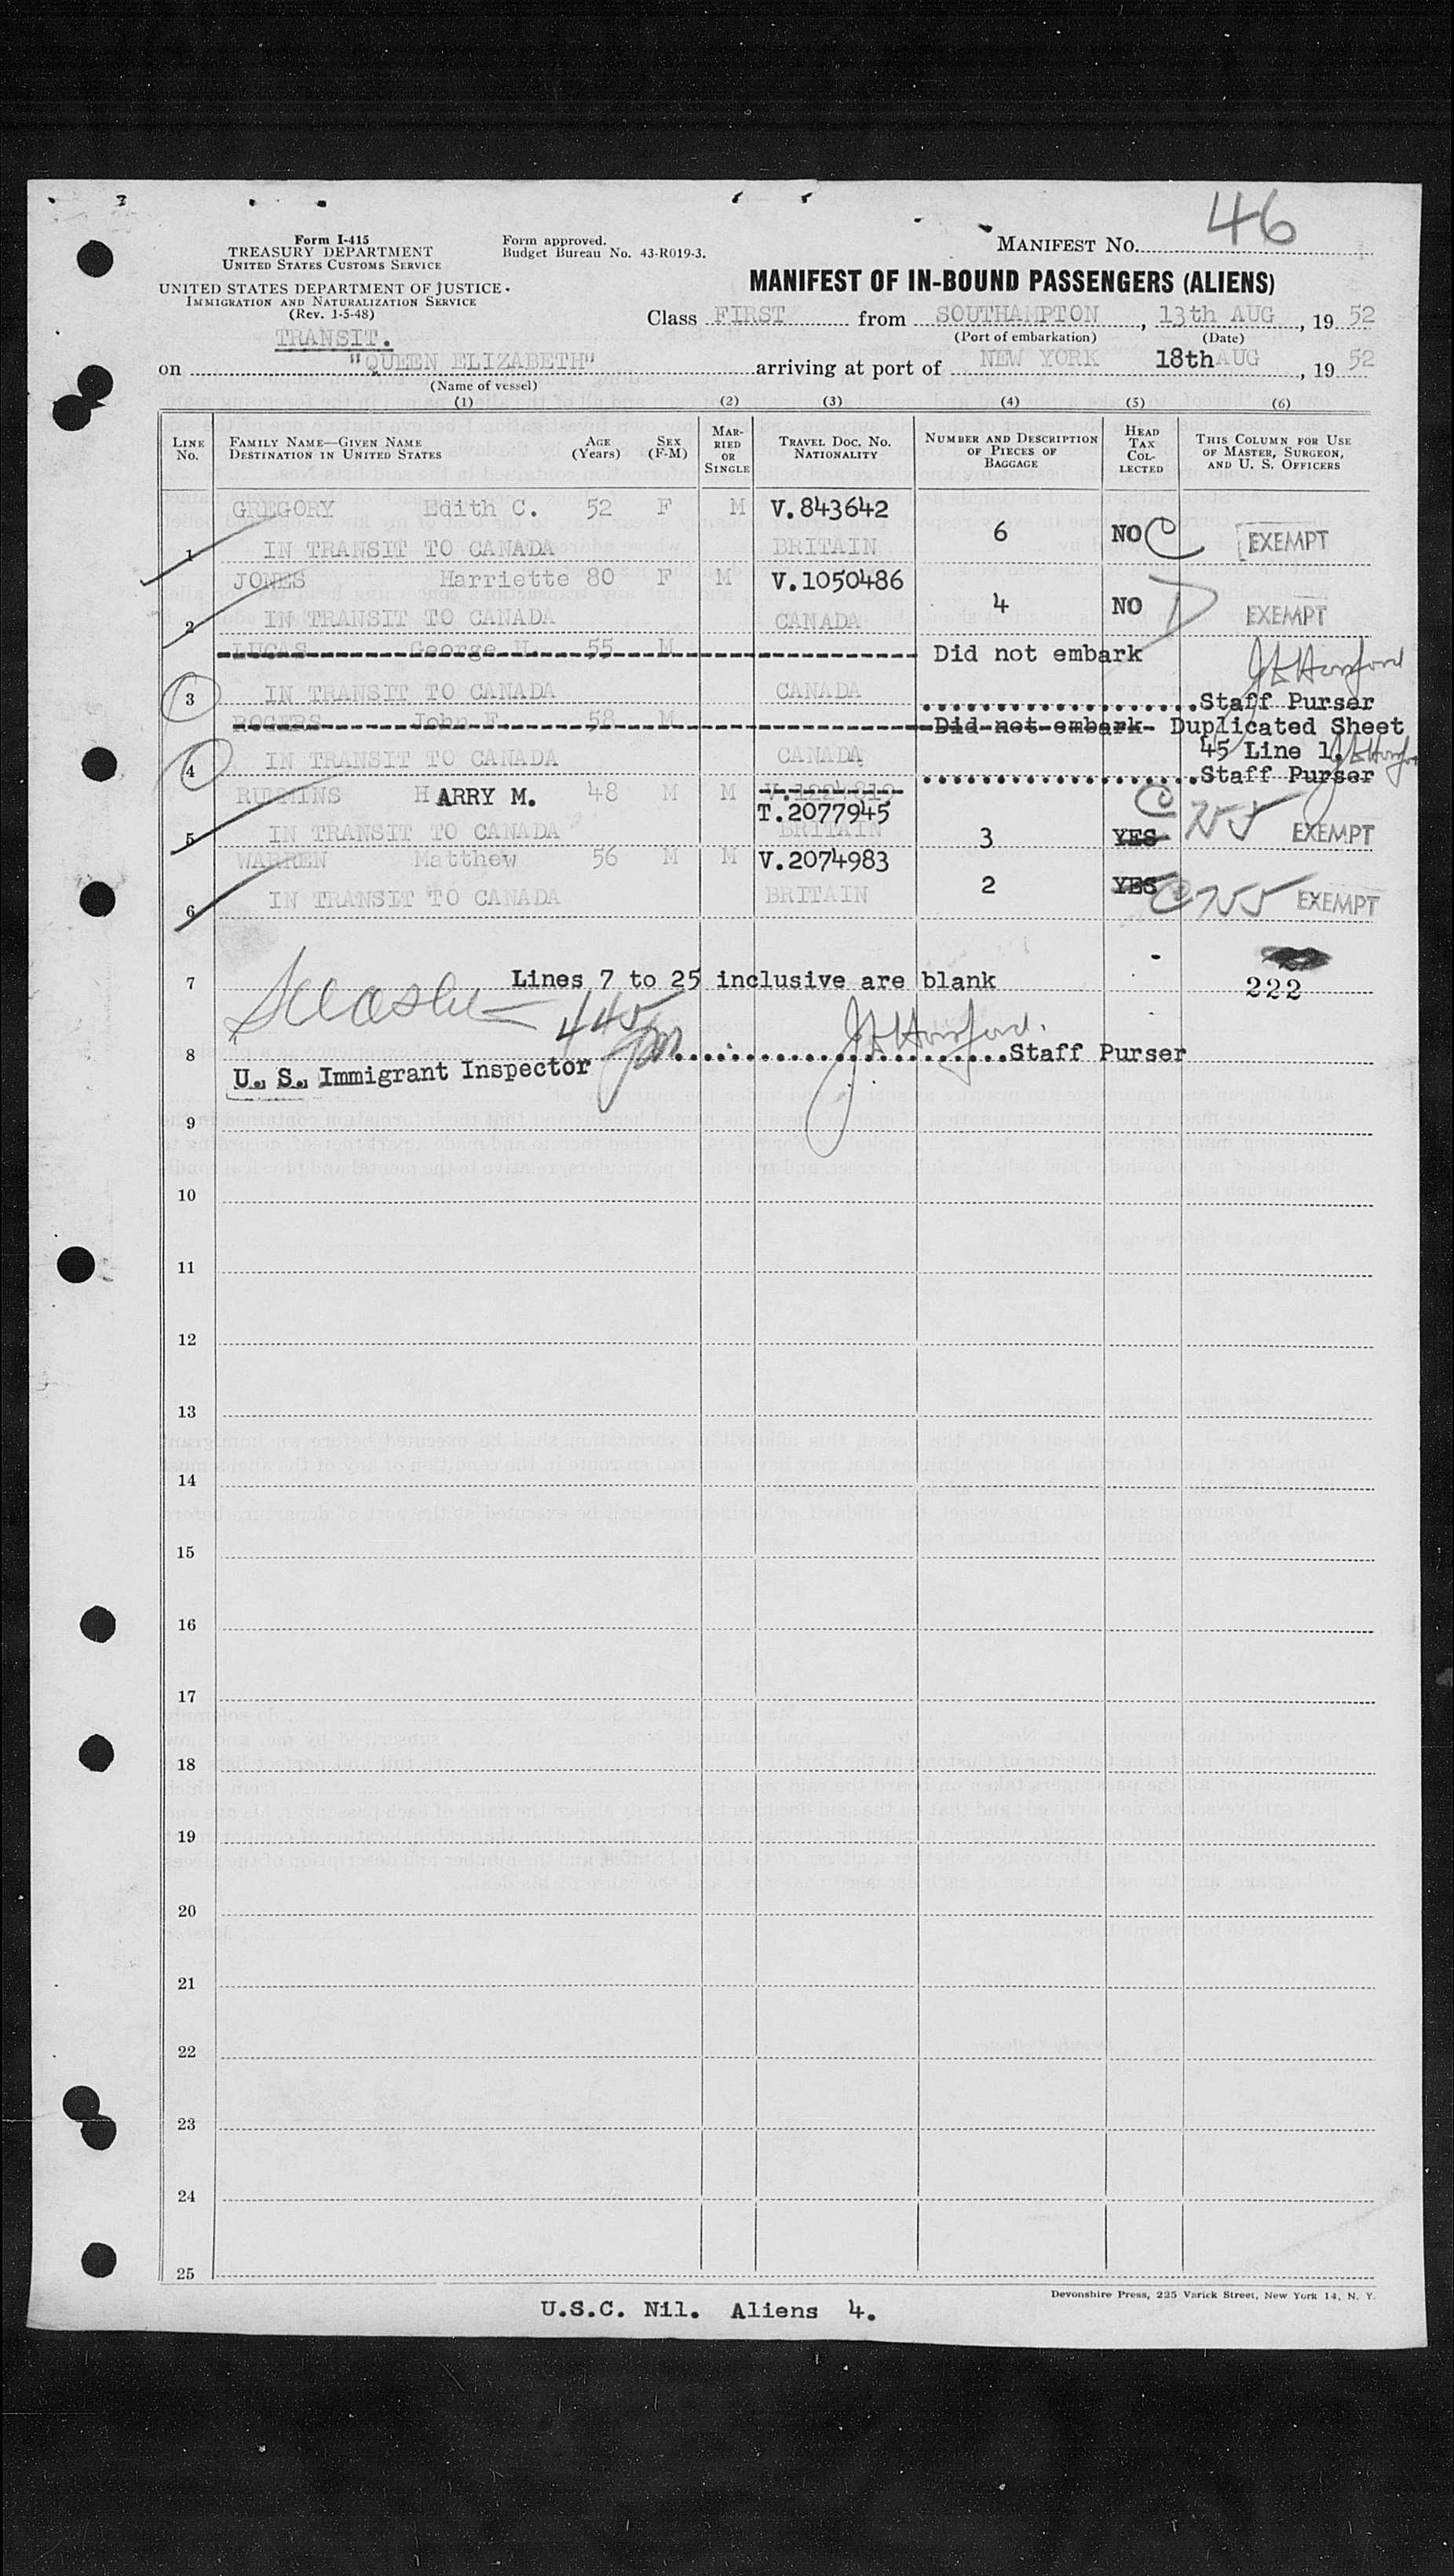 46
Form I-415
TREASURY DEPARTMENT
UNITED STATES CUSTOMS SERVICE
UNITED STATES DEPARTMENT OF JUSTICE
IMMIGRATION AND NATURALIZATION SERVICE
(Rev. 1-5-48)
Form approved.
Budget Bureau No. 43-R019-3.
MANIFEST NO.
MANIFEST OF IN-BOUND PASSENGERS (ALIENS)
Class FIRST from SOUTHAMPTON, 13th AUG, 19 52
(Port of embarkation) (Date)
TRANSIT.
on "QUEEN ELIZABETH" arriving at port of NEW YORK 18th AUG, 19 52
(Name of vessel)
(1) (2) (3) (4) (5) (6)
LINE NO.
FAMILY NAME—GIVEN NAME
DESTINATION IN UNITED STATES
AGE (Years)
SEX (F-M)
MARRIED OR SINGLE
TRAVEL DOC. NO.
NATIONALITY
NUMBER AND DESCRIPTION OF PIECES OF BAGGAGE
HEAD TAX COLLECTED
THIS COLUMN FOR USE OF MASTER, SURGEON, AND U. S. OFFICERS
GREGORY Edith C. 52 F M V.843642
1 IN TRANSIT TO CANADA BRITAIN 6 NO C EXEMPT
JONES Harriette 80 F M V.1050486
2 IN TRANSIT TO CANADA CANADA 4 NO D EXEMPT
LUCAS George H. 55 M Did not embark
3 IN TRANSIT TO CANADA CANADA Staff Purser
ROGERS John F. 58 M Did not embark- Duplicated Sheet
4 IN TRANSIT TO CANADA CANADA 45 Line 1.
Staff Purser
RUMMINS HARRY M. 48 M M
T.2077945
5 IN TRANSIT TO CANADA BRITAIN 3 YES C EXEMPT
WARREN Matthew 56 M M V.2074983
6 IN TRANSIT TO CANADA BRITAIN 2 YES C EXEMPT
7 Lines 7 to 25 inclusive are blank 222
445
8 Staff Purser
U. S. Immigrant Inspector
9
10
11
12
13
14
15
16
17
18
19
20
21
22
23
24
25
Devonshire Press, 225 Varick Street, New York 14, N. Y.
U.S.C. Nil. Aliens 4.